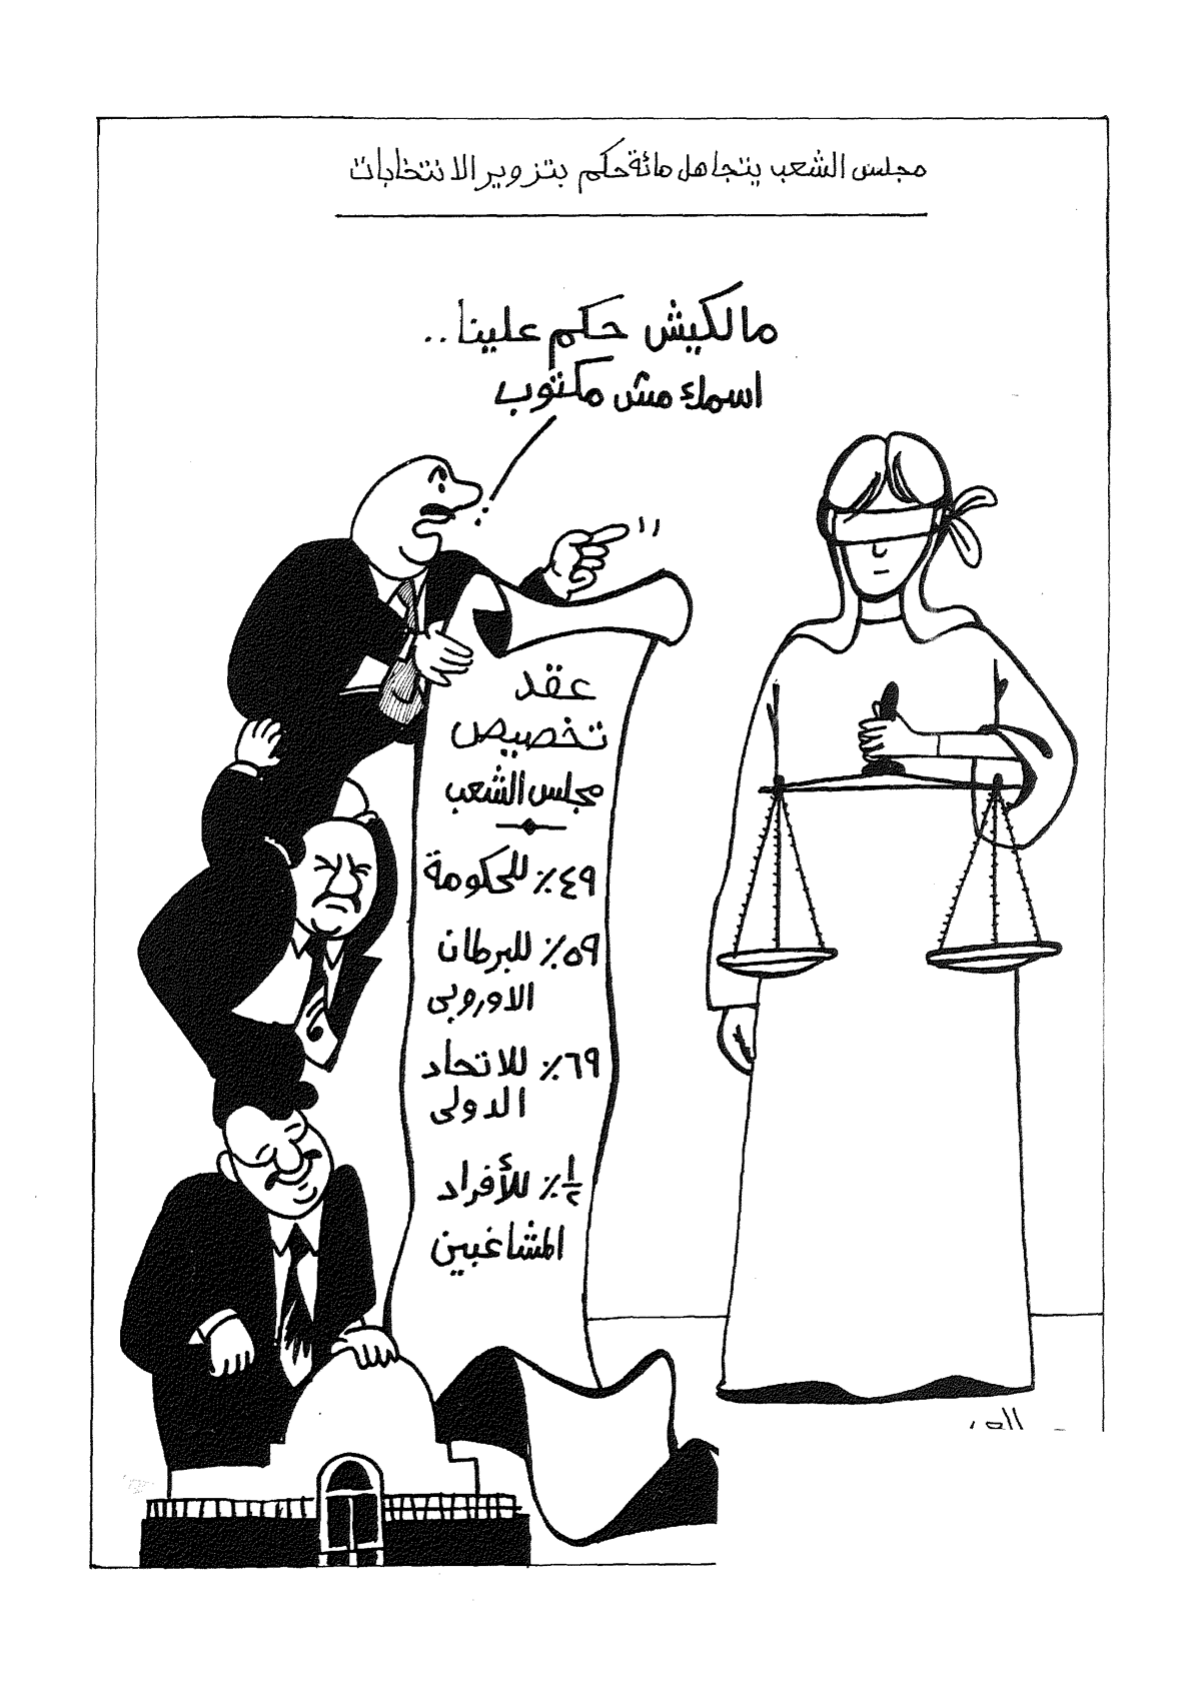 مجلس الشعب يتجاهل مائة حكم بتزوير الانتخابات
مالكيش حكم علينا..
اسمك مش مكتوب
عقد
تخصيص
مجلس الشعب
٤٩٪ للحكومة
٥٩٪ للبرطان
الاوروبى
٦٩٪ للاتحاد
الدولى
١/٢٪ للأفراد
المشاغبين